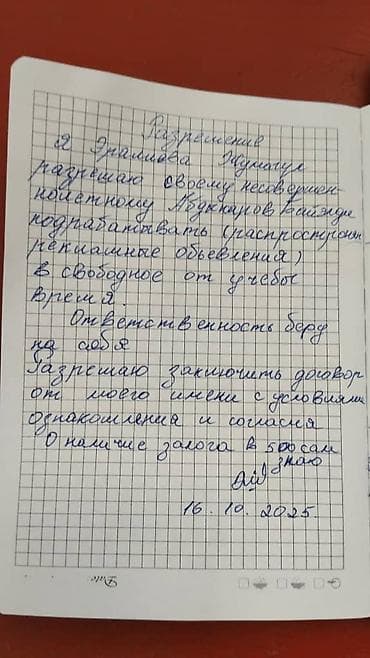 Разрешение
Я Эралиева Жумагул
разрешаю своему несовершен-
нолетнему Абдыкаров
подрабатывать (распростронять
рекламные обьевления)
в свободное от учебы
время.
Ответственность беру
на себя
Разрешаю заключить договор
от моего имени с условиями
ознакомления и согласия
О наличие залога в 500 сом
знаю
16.10.2025.
Date: